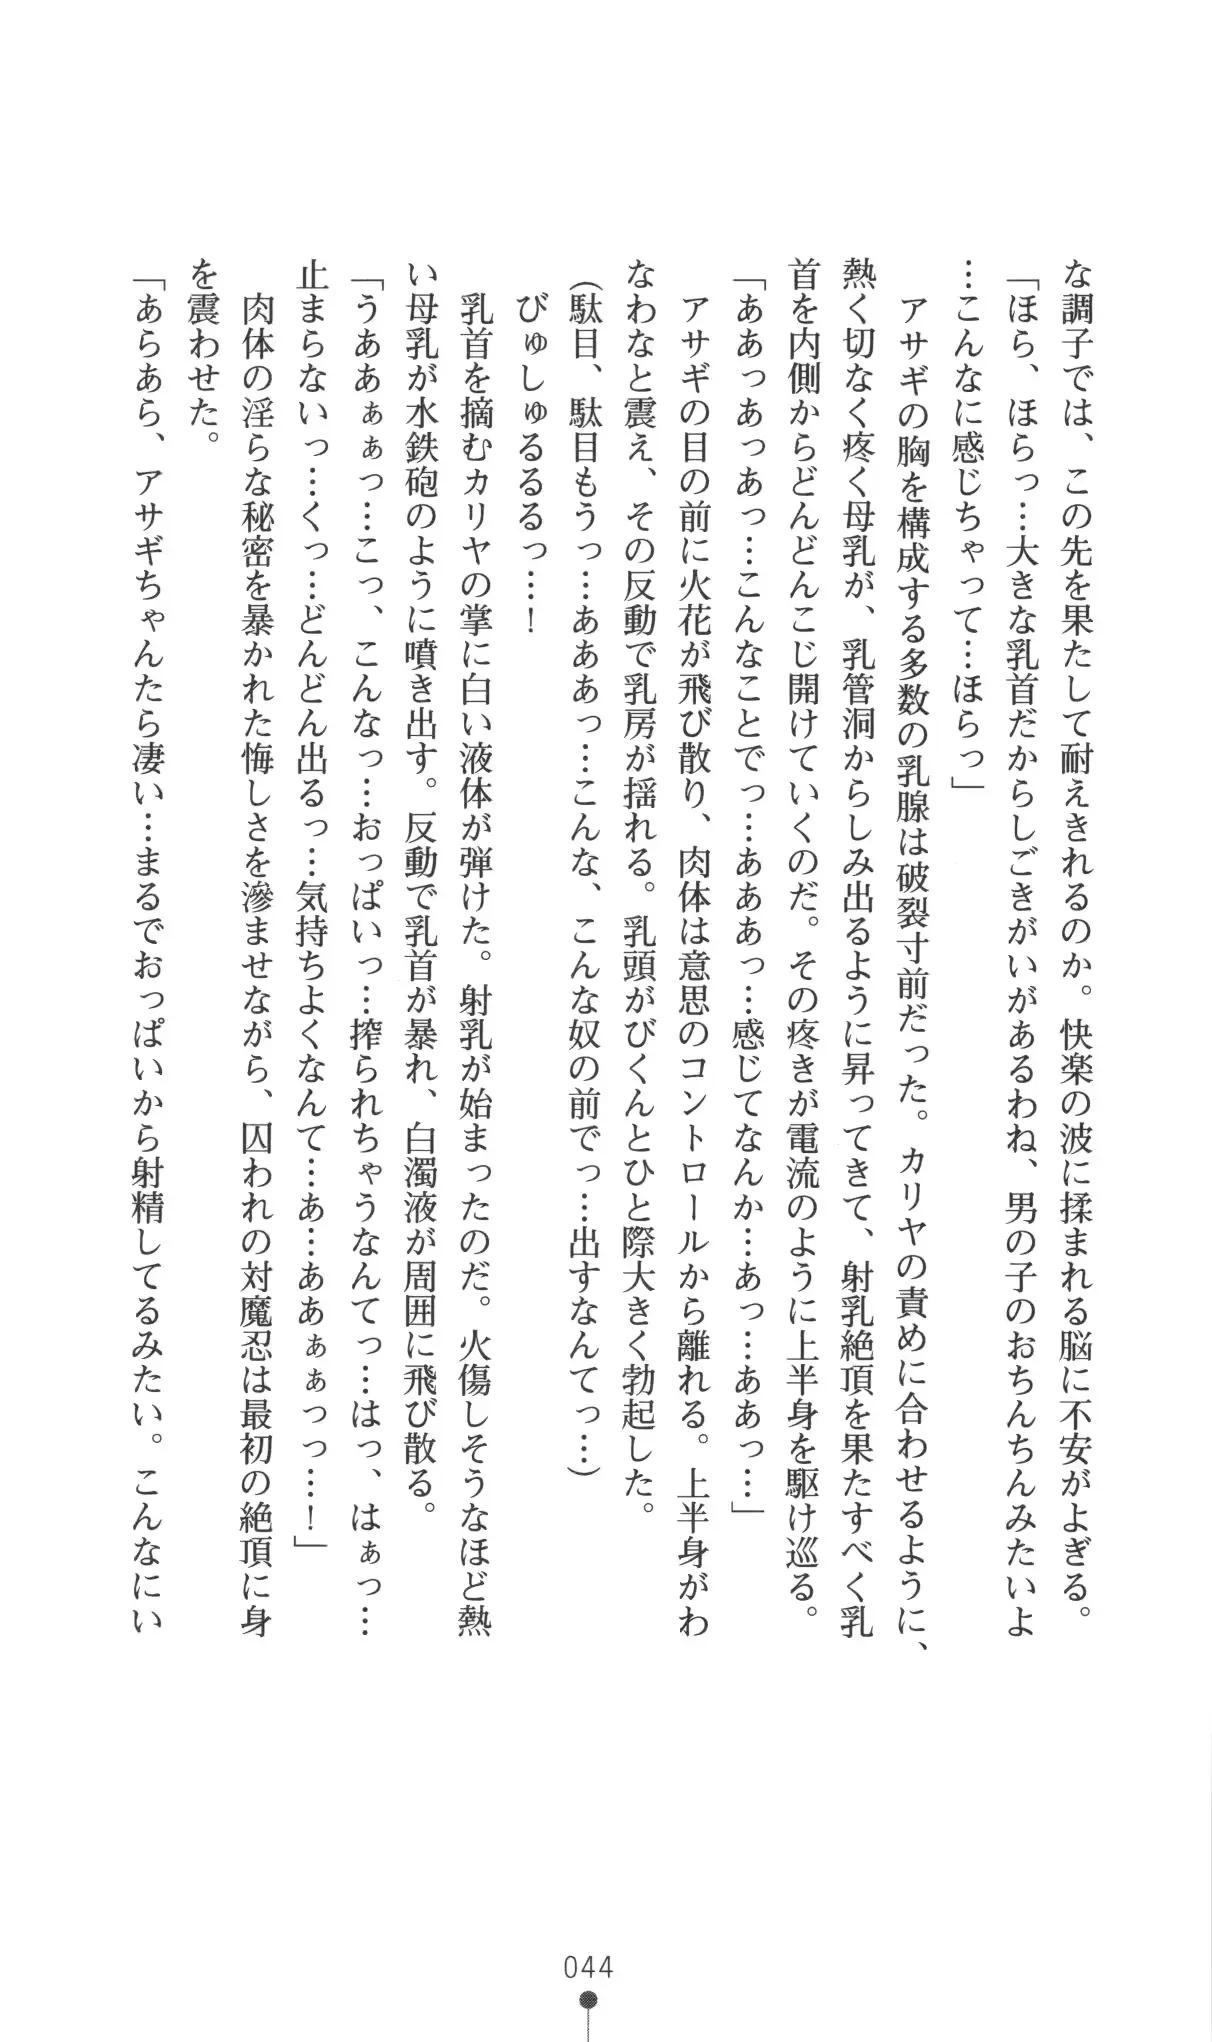 な調子では、この先を果たして耐えきれるのか。快楽の波に揉まれる脳に不安がよぎる。
「ほら、ほらっ…大きな乳首だからしごきがいがあるわね、男の子のおちんちんみたいよ
…こんなに感じちゃって…ほらっ」
アサギの胸を構成する多数の乳腺は破裂寸前だった。カリヤの責めに合わせるように、
熱く切なく疼く母乳が、乳管洞からしみ出るように昇ってきて、射乳絶頂を果たすべく乳
首を内側からどんどんこじ開けていくのだ。その疼きが電流のように上半身を駆け巡る。
「ああっあっあっ…こんなことでっ…あああっ…感じてなんか…あっ…ああっ…」
アサギの目の前に火花が飛び散り、肉体は意思のコントロールから離れる。上半身がわ
なわなと震え、その反動で乳房が揺れる。乳頭がびくんとひと際大きく勃起した。
(駄目、駄目もうっ…あああっ…こんな、こんな奴の前でっ…出すなんてっ…)
びゅしゅるるるっ…！
乳首を摘むカリヤの掌に白い液体が弾けた。射乳が始まったのだ。火傷しそうなほど熱
い母乳が水鉄砲のように噴き出す。反動で乳首が暴れ、白濁液が周囲に飛び散る。
「うああぁぁっ…こっ、こんなっ…おっぱいっ…搾られちゃうなんてっ…はっ、はぁっ…
止まらないっ…くっ…どんどん出るっ…気持ちよくなんて…あ…ああぁぁっっ…！」
肉体の淫らな秘密を暴かれた悔しさを滲ませながら、囚われの対魔忍は最初の絶頂に身
を震わせた。
「あらあら、アサギちゃんたら凄い…まるでおっぱいから射精してるみたい。こんなにい
044